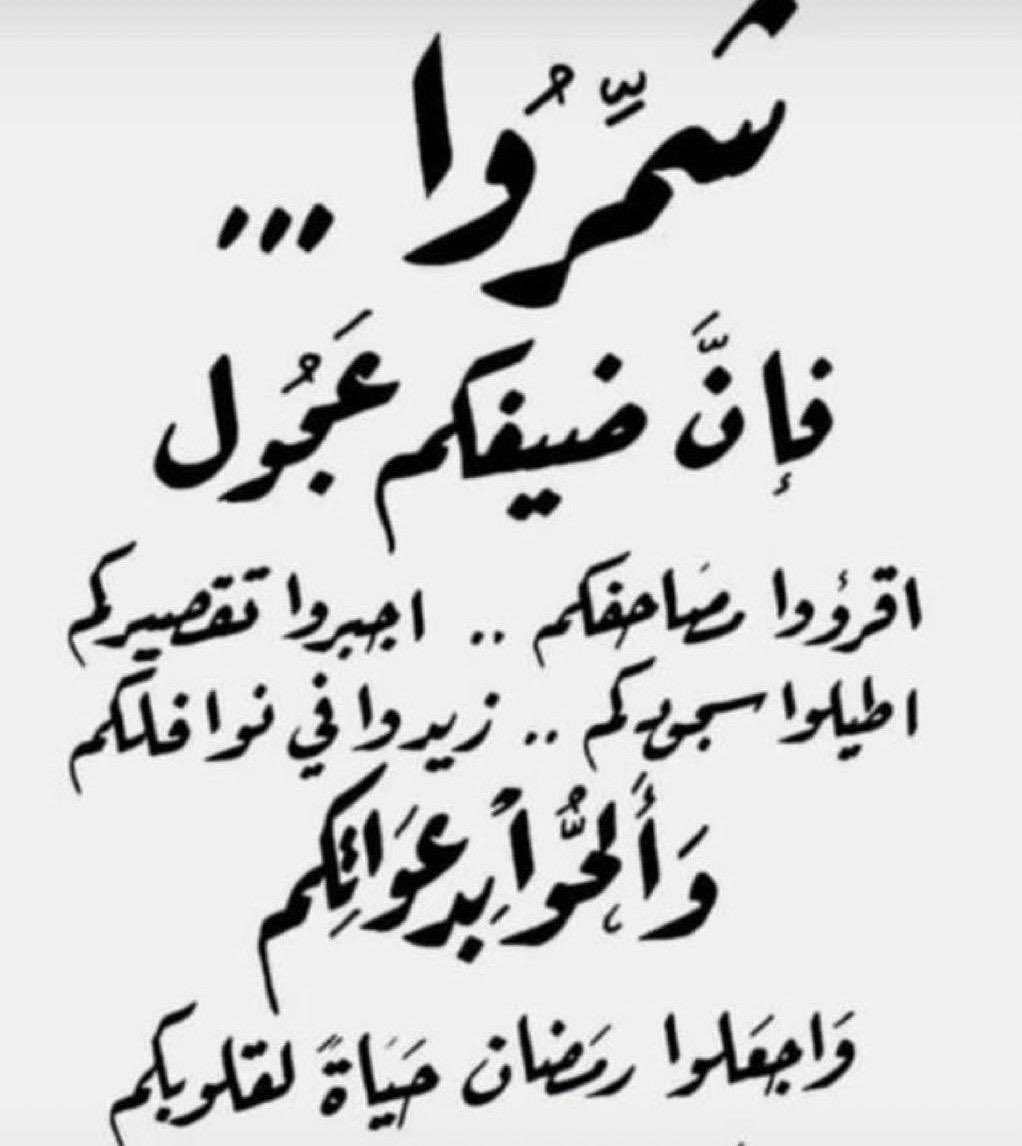 شَمِّرُوا ...
فإنَّ ضيفكم عَجُول
اقرؤوا مصَاحفكم .. اجبروا تقصيركم
اطيلوا سجودكم .. زيدوا في نوافلكم
وَأَلحُّوا بِدعوَائِكم
وَاجعَلوا رمَضان حَيَاةً لقلوبكم